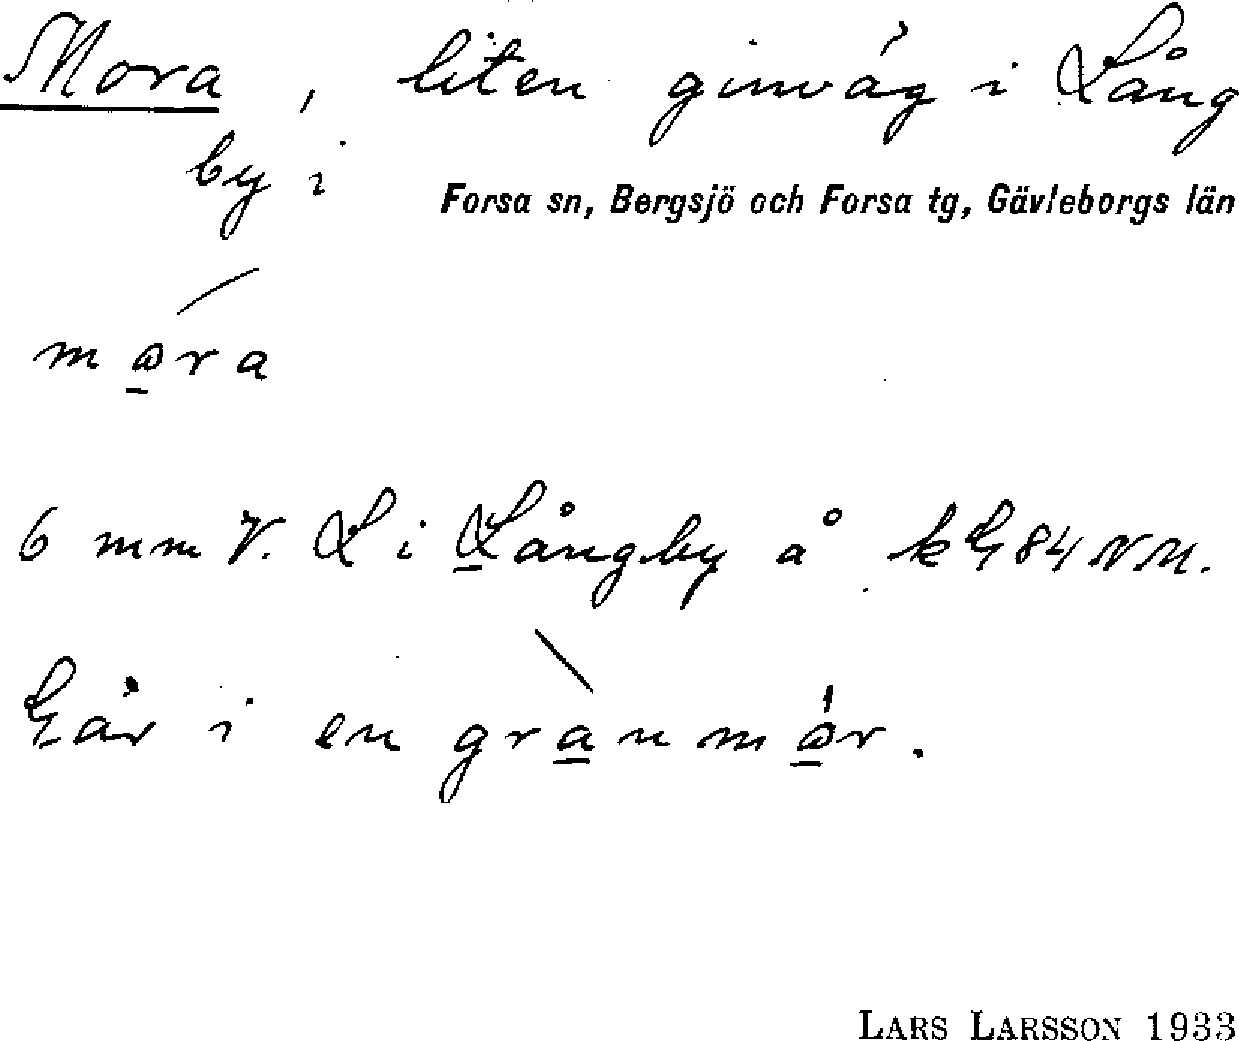 Mora, liten ginväg i Lång
by i
Forsa sn, Bergsjö och Forsa tg, Gävleborgs län
mɷra
6 mm V. L i Långby å kG 84 NM.
Går i en granmɷr.
LARS LARSSON 1933